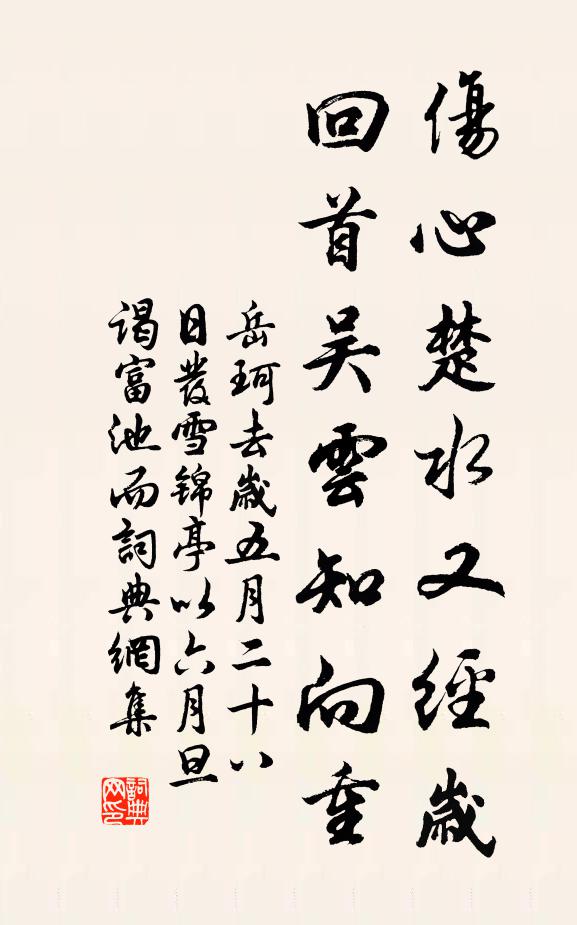 傷心楚水又經歲
回首吴雲知向重
岳珂去歲五月二十八
日發雪锦亭以六月旦
謁富池而詞典網集
詞典网印